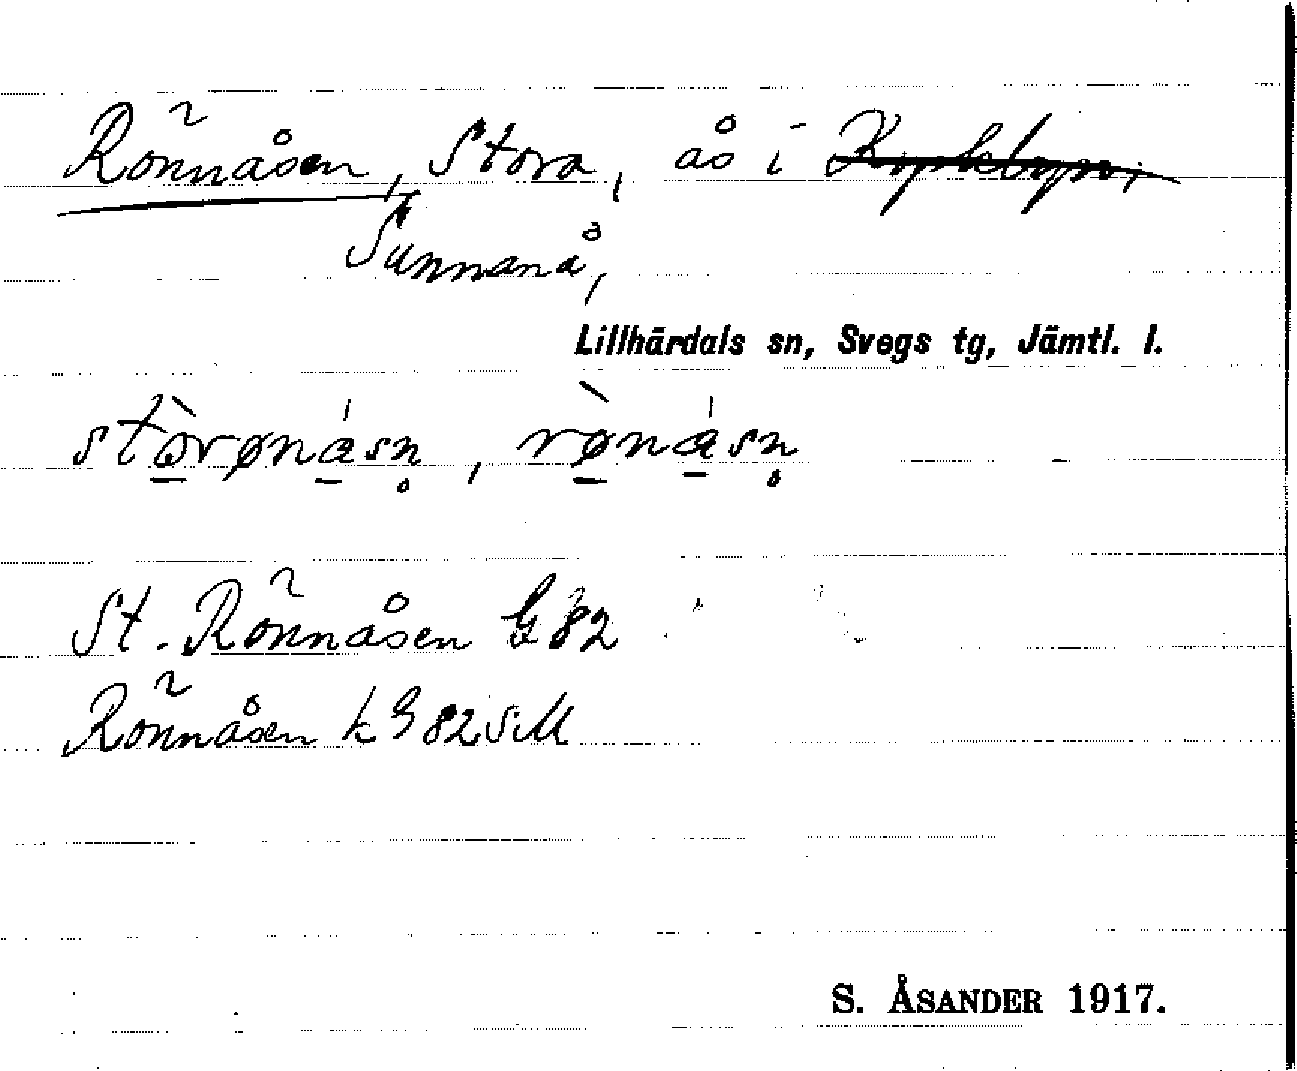 Rönnåsen, Stora, ås i Kyrkbyn,
Sunnanå,
Lillhärdals sn, Svegs tg, Jämtl. l.
stòrønásn̥, rǿ̀násn̥
St. Rönnåsen G 82
Rönnåsen k G 82 SM
S. ÅSANDER 1917.